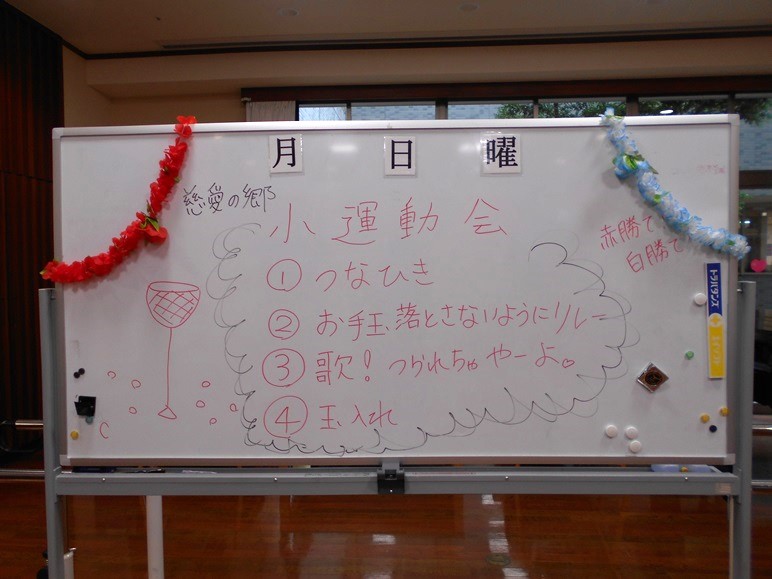 月 日 曜
慈愛の郷
小運動会
赤勝て
白勝て
① つなひき
② お手玉落とさないようにリレー
③ 歌！つられちゃやーよ♡
④ 玉入れ